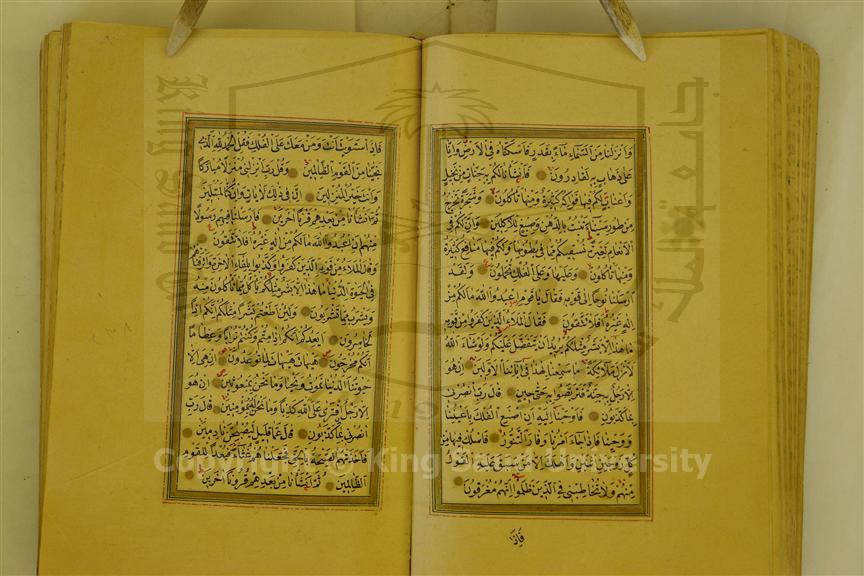 وَانْزَلْنَا مِنَ السَّمَاءِ مَاءً بِقَدَرٍ فَاَسْكَنَّاهُ فِي الْاَرْضِ وَاِنَّا
عَلٰى ذَهَابٍ بِهِ لَقَادِرُونَ فَاَنْشَاْنَا لَكُمْ بِهِ جَنَّاتٍ مِنْ نَخِيلٍ
وَاَعْنَابٍ لَكُمْ فِيهَا فَوَاكِهُ كَثِيرَةٌ وَمِنْهَا تَاْكُلُونَ وَشَجَرَةً تَخْرُجُ
مِنْ طُورِ سَيْنَاءَ تَنْبُتُ بِالدُّهْنِ وَصِبْغٍ لِلْاٰكِلِينَ وَاِنَّ لَكُمْ فِي
الْاَنْعَامِ لَعِبْرَةً نُسْقِيكُمْ مِمَّا فِي بُطُونِهَا وَلَكُمْ فِيهَا مَنَافِعُ كَثِيرَةٌ
وَمِنْهَا تَاْكُلُونَ وَعَلَيْهَا وَعَلَى الْفُلْكِ تُحْمَلُونَ وَلَقَدْ
اَرْسَلْنَا نُوحًا اِلٰى قَوْمِهِ فَقَالَ يَا قَوْمِ اعْبُدُوا اللهَ مَالَكُمْ مِنْ
اِلٰهٍ غَيْرُهُ اَفَلَا تَتَّقُونَ فَقَالَ الْمَلَاءُ الَّذِينَ كَفَرُوا مِنْ قَوْمِهِ
مَا هٰذَا اِلَّا بَشَرٌ مِثْلُكُمْ يُرِيدُ اَنْ يَتَفَضَّلَ عَلَيْكُمْ وَلَوْ شَاءَ اللهُ
لَاَنْزَلَ مَلَائِكَةً مَا سَمِعْنَا بِهٰذَا فِي اٰبَائِنَا الْاَوَّلِينَ اِنْ هُوَ
اِلَّا رَجُلٌ بِهِ جِنَّةٌ فَتَرَبَّصُوا بِهِ حَتّٰى حِينٍ قَالَ رَبِّ انْصُرْنِي
بِمَا كَذَّبُونِ فَاَوْحَيْنَا اِلَيْهِ اَنِ اصْنَعِ الْفُلْكَ بِاَعْيُنِنَا
وَوَحْيِنَا فَاِذَا جَاءَ اَمْرُنَا وَفَارَ التَّنُّورُ فَاسْلُكْ فِيهَا مِنْ
كُلٍّ زَوْجَيْنِ اثْنَيْنِ وَاَهْلَكَ اِلَّا مَنْ سَبَقَ عَلَيْهِ الْقَوْلُ
مِنْهُمْ وَلَا تُخَاطِبْنِي فِي الَّذِينَ ظَلَمُوا اِنَّهُمْ مُغْرَقُونَ
فَاِذَا
فَاِذَا اسْتَوَيْتَ اَنْتَ وَمَنْ مَعَكَ عَلَى الْفُلْكِ فَقُلِ الْحَمْدُ لِلّٰهِ الَّذِي
نَجّٰينَا مِنَ الْقَوْمِ الظَّالِمِينَ وَقُلْ رَبِّ اَنْزِلْنِي مُنْزَلًا مُبَارَكًا
وَاَنْتَ خَيْرُ الْمُنْزِلِينَ اِنَّ فِي ذٰلِكَ لَاٰيَاتٍ وَاِنْ كُنَّا لَمُبْتَلِينَ
ثُمَّ اَنْشَاْنَا مِنْ بَعْدِهِمْ قَرْنًا اٰخَرِينَ فَاَرْسَلْنَا فِيهِمْ رَسُولًا
مِنْهُمْ اَنِ اعْبُدُوا اللهَ مَالَكُمْ مِنْ اِلٰهٍ غَيْرُهُ اَفَلَا تَتَّقُونَ
وَقَالَ الْمَلَاءُ مِنْ قَوْمِهِ الَّذِينَ كَفَرُوا وَكَذَّبُوا بِلِقَاءِ الْاٰخِرَةِ وَاَتْرَفْنَاهُمْ
فِي الْحَيٰوةِ الدُّنْيَا مَا هٰذَا اِلَّا بَشَرٌ مِثْلُكُمْ يَاْكُلُ مِمَّا تَاْكُلُونَ مِنْهُ
وَيَشْرَبُ مِمَّا تَشْرَبُونَ وَلَئِنْ اَطَعْتُمْ بَشَرًا مِثْلَكُمْ اِنَّكُمْ اِذًا
لَخَاسِرُونَ اَيَعِدُكُمْ اَنَّكُمْ اِذَا مِتُّمْ وَكُنْتُمْ تُرَابًا وَعِظَامًا
اَنَّكُمْ مُخْرَجُونَ هَيْهَاتَ هَيْهَاتَ لِمَا تُوعَدُونَ اِنْ هِيَ اِلَّا
حَيٰوتُنَا الدُّنْيَا نَمُوتُ وَنَحْيَا وَمَا نَحْنُ بِمَبْعُوثِينَ اِنْ هُوَ
اِلَّا رَجُلٌ افْتَرٰى عَلَى اللهِ كَذِبًا وَمَا نَحْنُ لَهُ بِمُؤْمِنِينَ قَالَ رَبِّ
انْصُرْنِي بِمَا كَذَّبُونِ قَالَ عَمَّا قَلِيلٍ لَيُصْبِحُنَّ نَادِمِينَ
فَاَخَذَتْهُمُ الصَّيْحَةُ بِالْحَقِّ فَجَعَلْنَاهُمْ غُثَاءً فَبُعْدًا لِلْقَوْمِ
الظَّالِمِينَ ثُمَّ اَنْشَاْنَا مِنْ بَعْدِهِمْ قُرُونًا اٰخَرِينَ
Copyright © King Saud University
جامعة الملك سعود
King Saud University